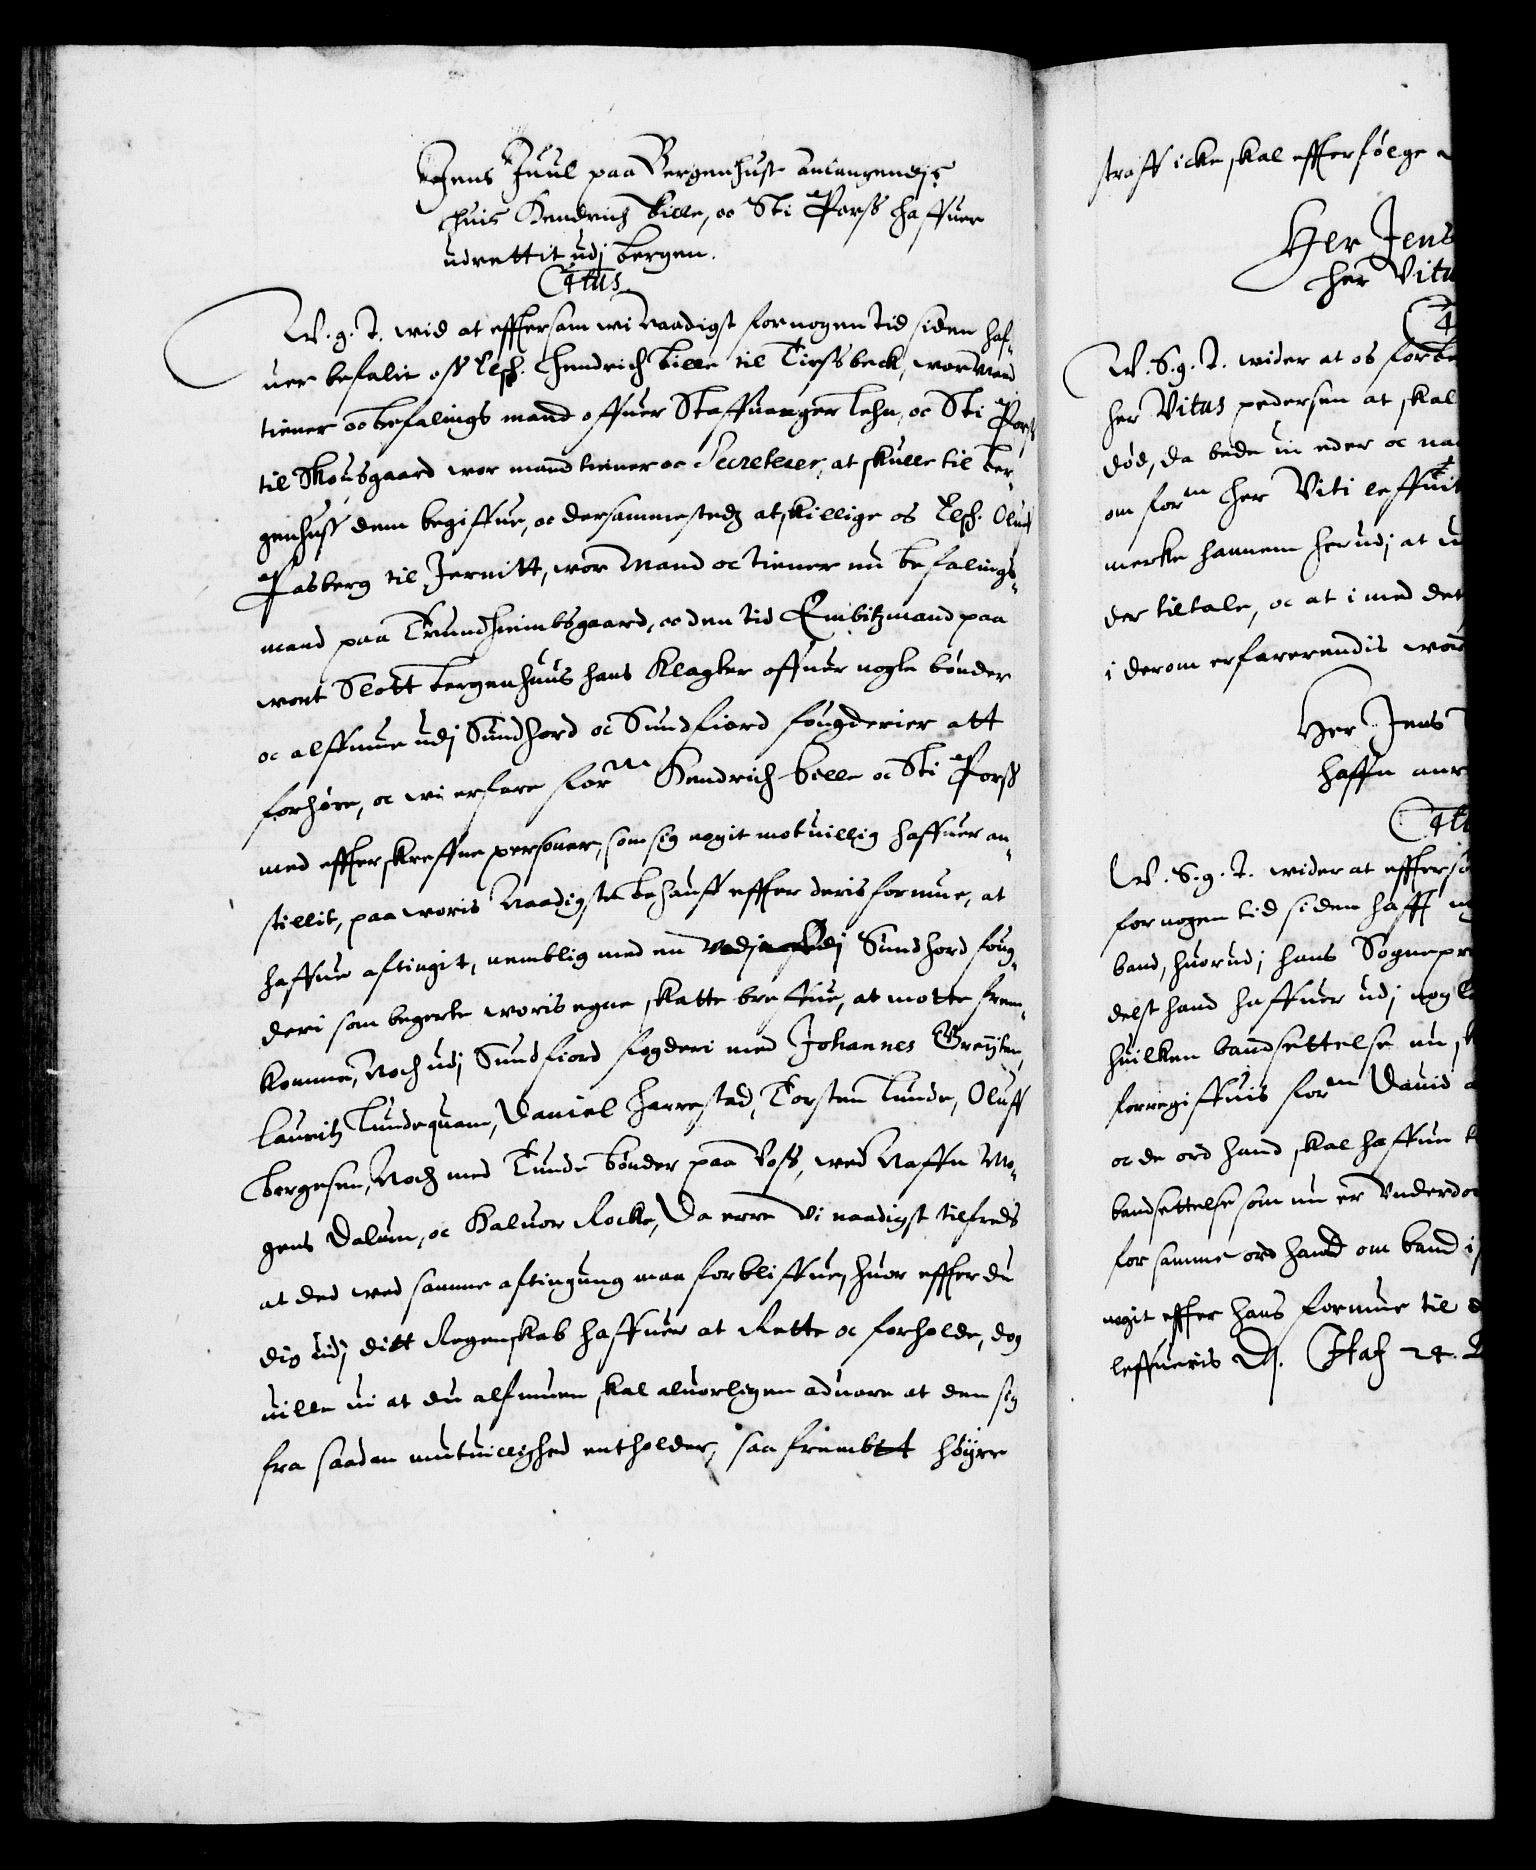 Jens Juul paa Bergenhuss anlangendis
huis Hendrich Bille, oc Sti Porss haffuer
udrettit udj Bergen.
C4tus
W. g. T. wid at effterson wi naadigst for nogen tid siden haf-
uer befalit oss Elsch. Hendrich Bille til Tirssbeck, wor Mand
tiener oc befalings mand offuer Staffuanger Lehn, oc Sti Porss
til Skousgaard wor mand tiener oc Secreterer, at skulle til Ber-
genhuss dem begiffue, oc dersammestedz atskillige os Elsch. Oluff
Pasberg til Jernitt, wor Mand oc tiener nu befalings-
mand paa Trundhiembsgaard, oc den tid Embitzmand paa
wort Slott Bergenhuus hans Klager offuer nogle bønder
oc alffmue udj Sundhord oc Sundfiord fougderier att
forhøre, oc wi erfare forne Hendrich Bille oc Sti Porss
med effterskreffne personer, som sig nogit motuillig haffuer an-
stillit, paa woris Naadigste behauff effter deris formue, at
haffue aftingit, nemblig med en udj Sundhord foug-
deri som begerte woris egne skatte breffue, at motte frem-
komme, Noch udj Sundfiord fogderi med Johannes Grøtten,
Lauritz Tundequam, Daniel Harrestad, Torsten Lunde, Oluff
Borgesen, Noch med Tunde bønder paa Voss, wed Naffn Mo-
gens Dalum, oc Haluor Rocke, Da erre Vi naadigst tilfreds
at ded wed samme aftingung maa forbliffue, huor effter du
dig udj ditt Regenskab haffuer at Rette oc forholde, dog
uille ui at du alfmuen skal aluorligen aduare at den sig
fra saadan mutuillighed entholder, saa frembt høyre
straff icke skal effterfølge
Her Jens
her Vitu
C4
W. S. g. T. wider at os forbe
her Vitus pedersen at skal
død, da bede ui eder oc naa
om forne her Viti leffuit
merke hannem herudj at u
der tiltale, oc at i med det
i derom erfarerendis wor
Her Jens
haffn anr
C4t
W. S. g. T. wider at effterso
for nogen tid siden haff
band, huorudj hans Sognepr
delst hand haffuer udj nogle
huilken bandsettelse nu sk
forregiffuis forne Dauid
oc de ord hand skal haffue
bandsettelse som nu er underdo
for samme ord hand om band
nogit effter hans formue til
leffueris Dj. Haf 24.